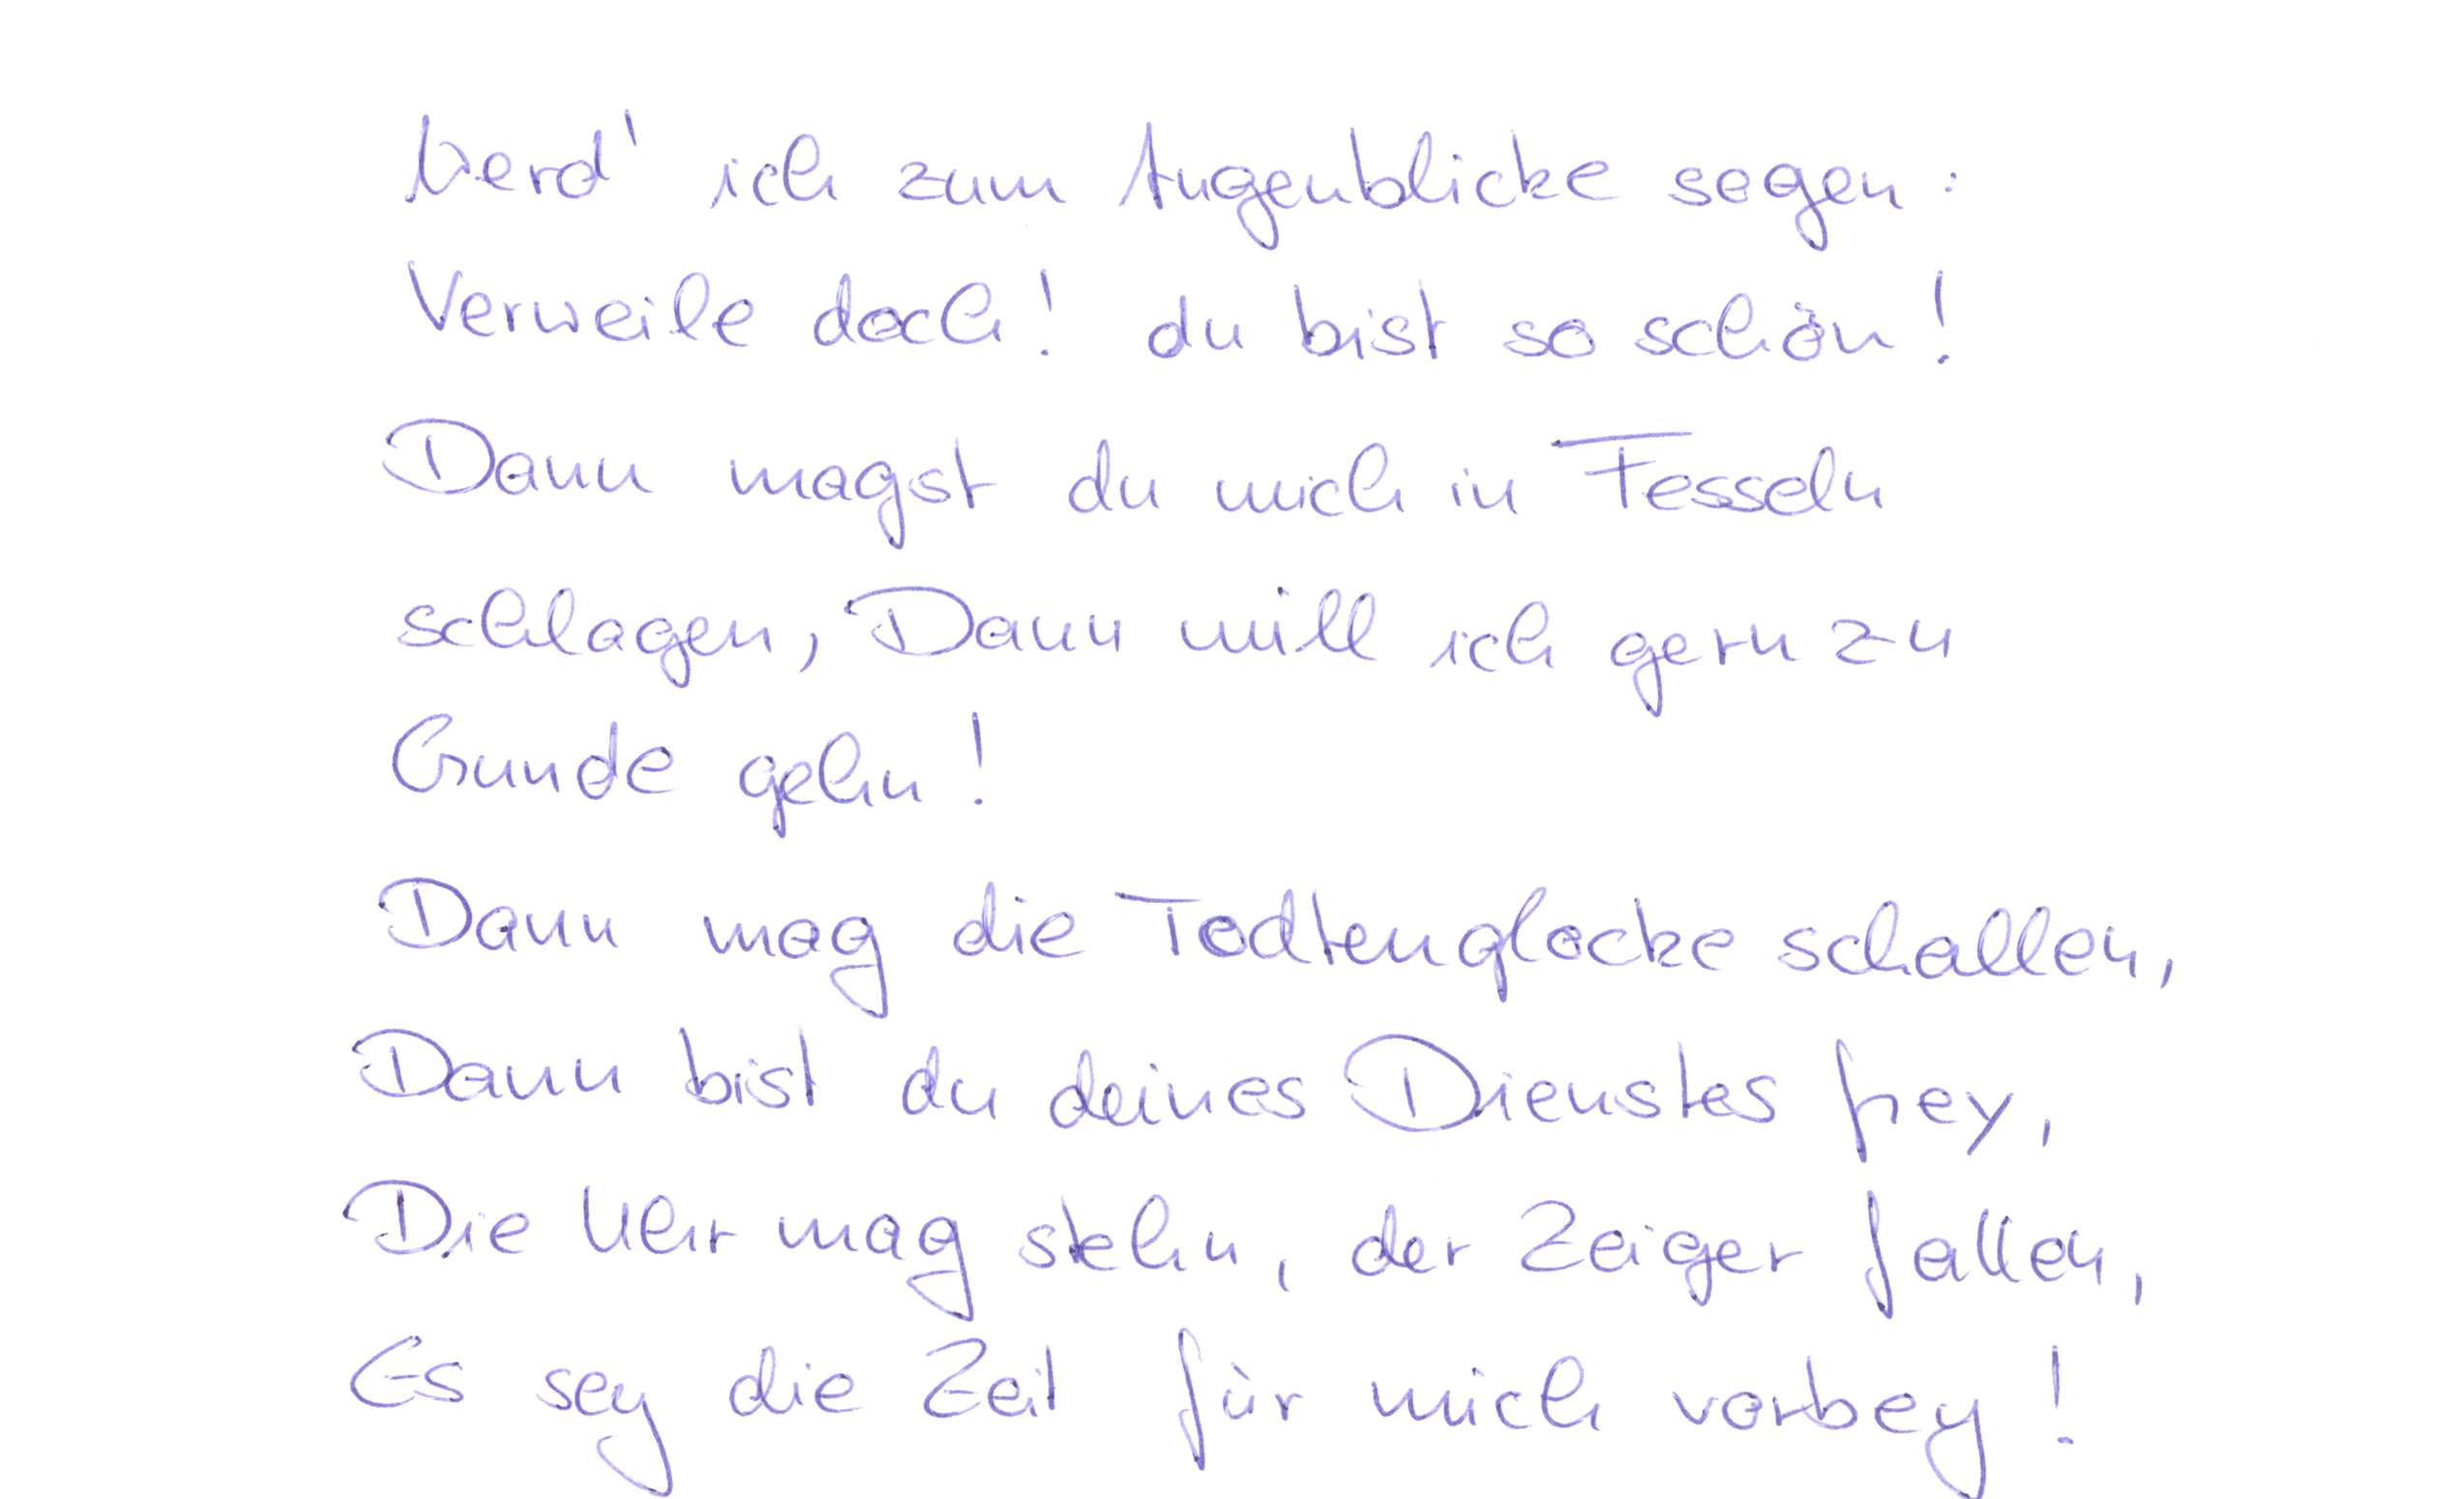 Werd' ich zum Augenblicke sagen:
Verweile doch! du bist so schön!
Dann magst du mich in Fesseln
schlagen, Dann will ich gern zu
Grunde gehn!
Dann mag die Todtenglocke schallen,
Dann bist du deines Dienstes frey,
Die Uhr mag stehn, der Zeiger fallen,
Es sey die Zeit für mich vorbey!